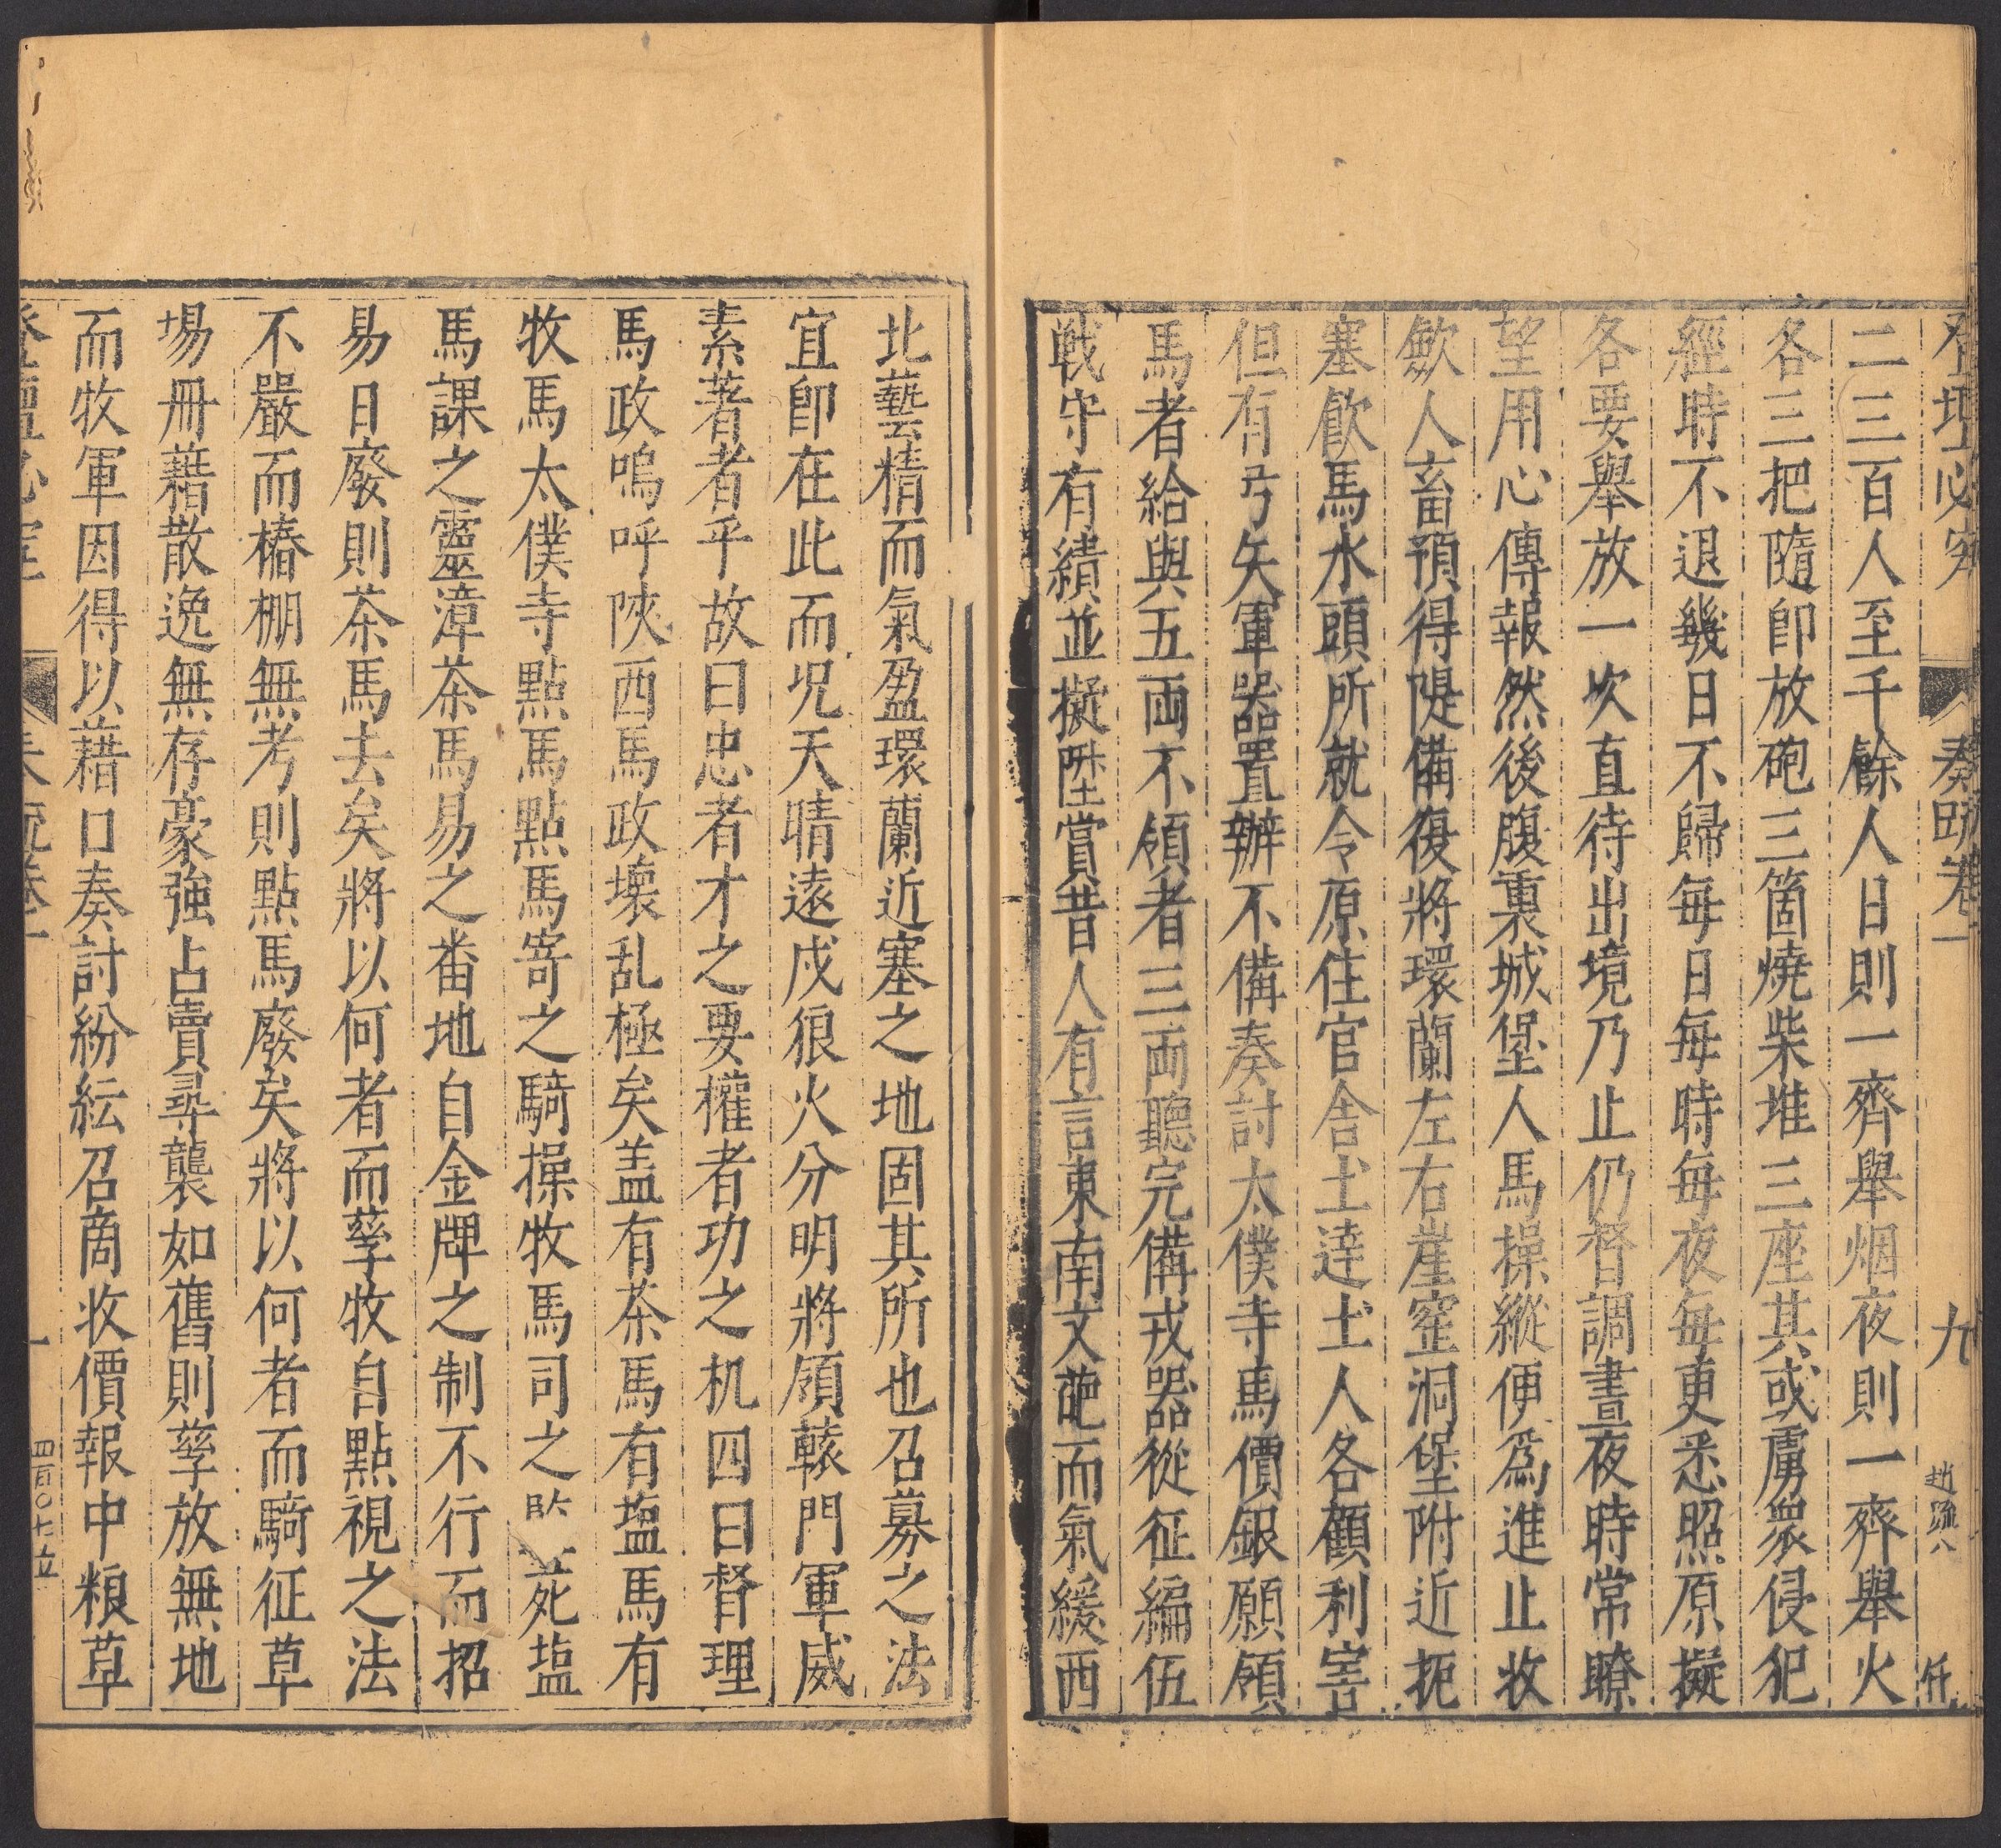 登壇必究 奏疏卷一 九 趙疏八 仟
二三百人至千餘人日則一齊舉烟夜則一齊舉火
各三把隨即放砲三箇燒柴堆三座其或虜衆侵犯
經時不退幾日不歸每日每時每夜每更悉照原擬
各要舉放一次直待出境乃止仍督調晝夜時常瞭
望用心傳報然後腹裏城堡人馬操縱便爲進止收
歛人畜預得隄備復將環蘭左右崖窑洞堡附近扼
塞飲馬水頭所就令原住官舍土達土人各顧利害
但有弓矢軍器置辦不備奏討太僕寺馬價銀願領
馬者給與五両不領者三両聽完備戎器從征編伍
戦守有績並擬陞賞昔人有言東南文葩而氣緩西
北藝精而氣盈環蘭近塞之地固其所也召募之法
宜卽在此而况天晴遠戍狼火分明將頎轅門軍威
素著者乎故曰忠者才之要權者功之机四曰督理
馬政嗚呼陝西馬政壞乱極矣盖有茶馬有塩馬有
牧馬太僕寺點馬點馬寄之騎操牧馬司之 苑塩
馬課之靈漳茶馬易之番地自金牌之制不行而招
易日廢則茶馬去矣將以何者而孳牧自點視之法
不嚴而樁棚無考則點馬廢矣將以何者而騎征草
場冊藉散逸無存豪強占賣尋襲如舊則孳放無地
而牧軍因得以藉口奏討紛紜召商收價報中粮草
登壇必究 奏疏卷一 四百〇七立